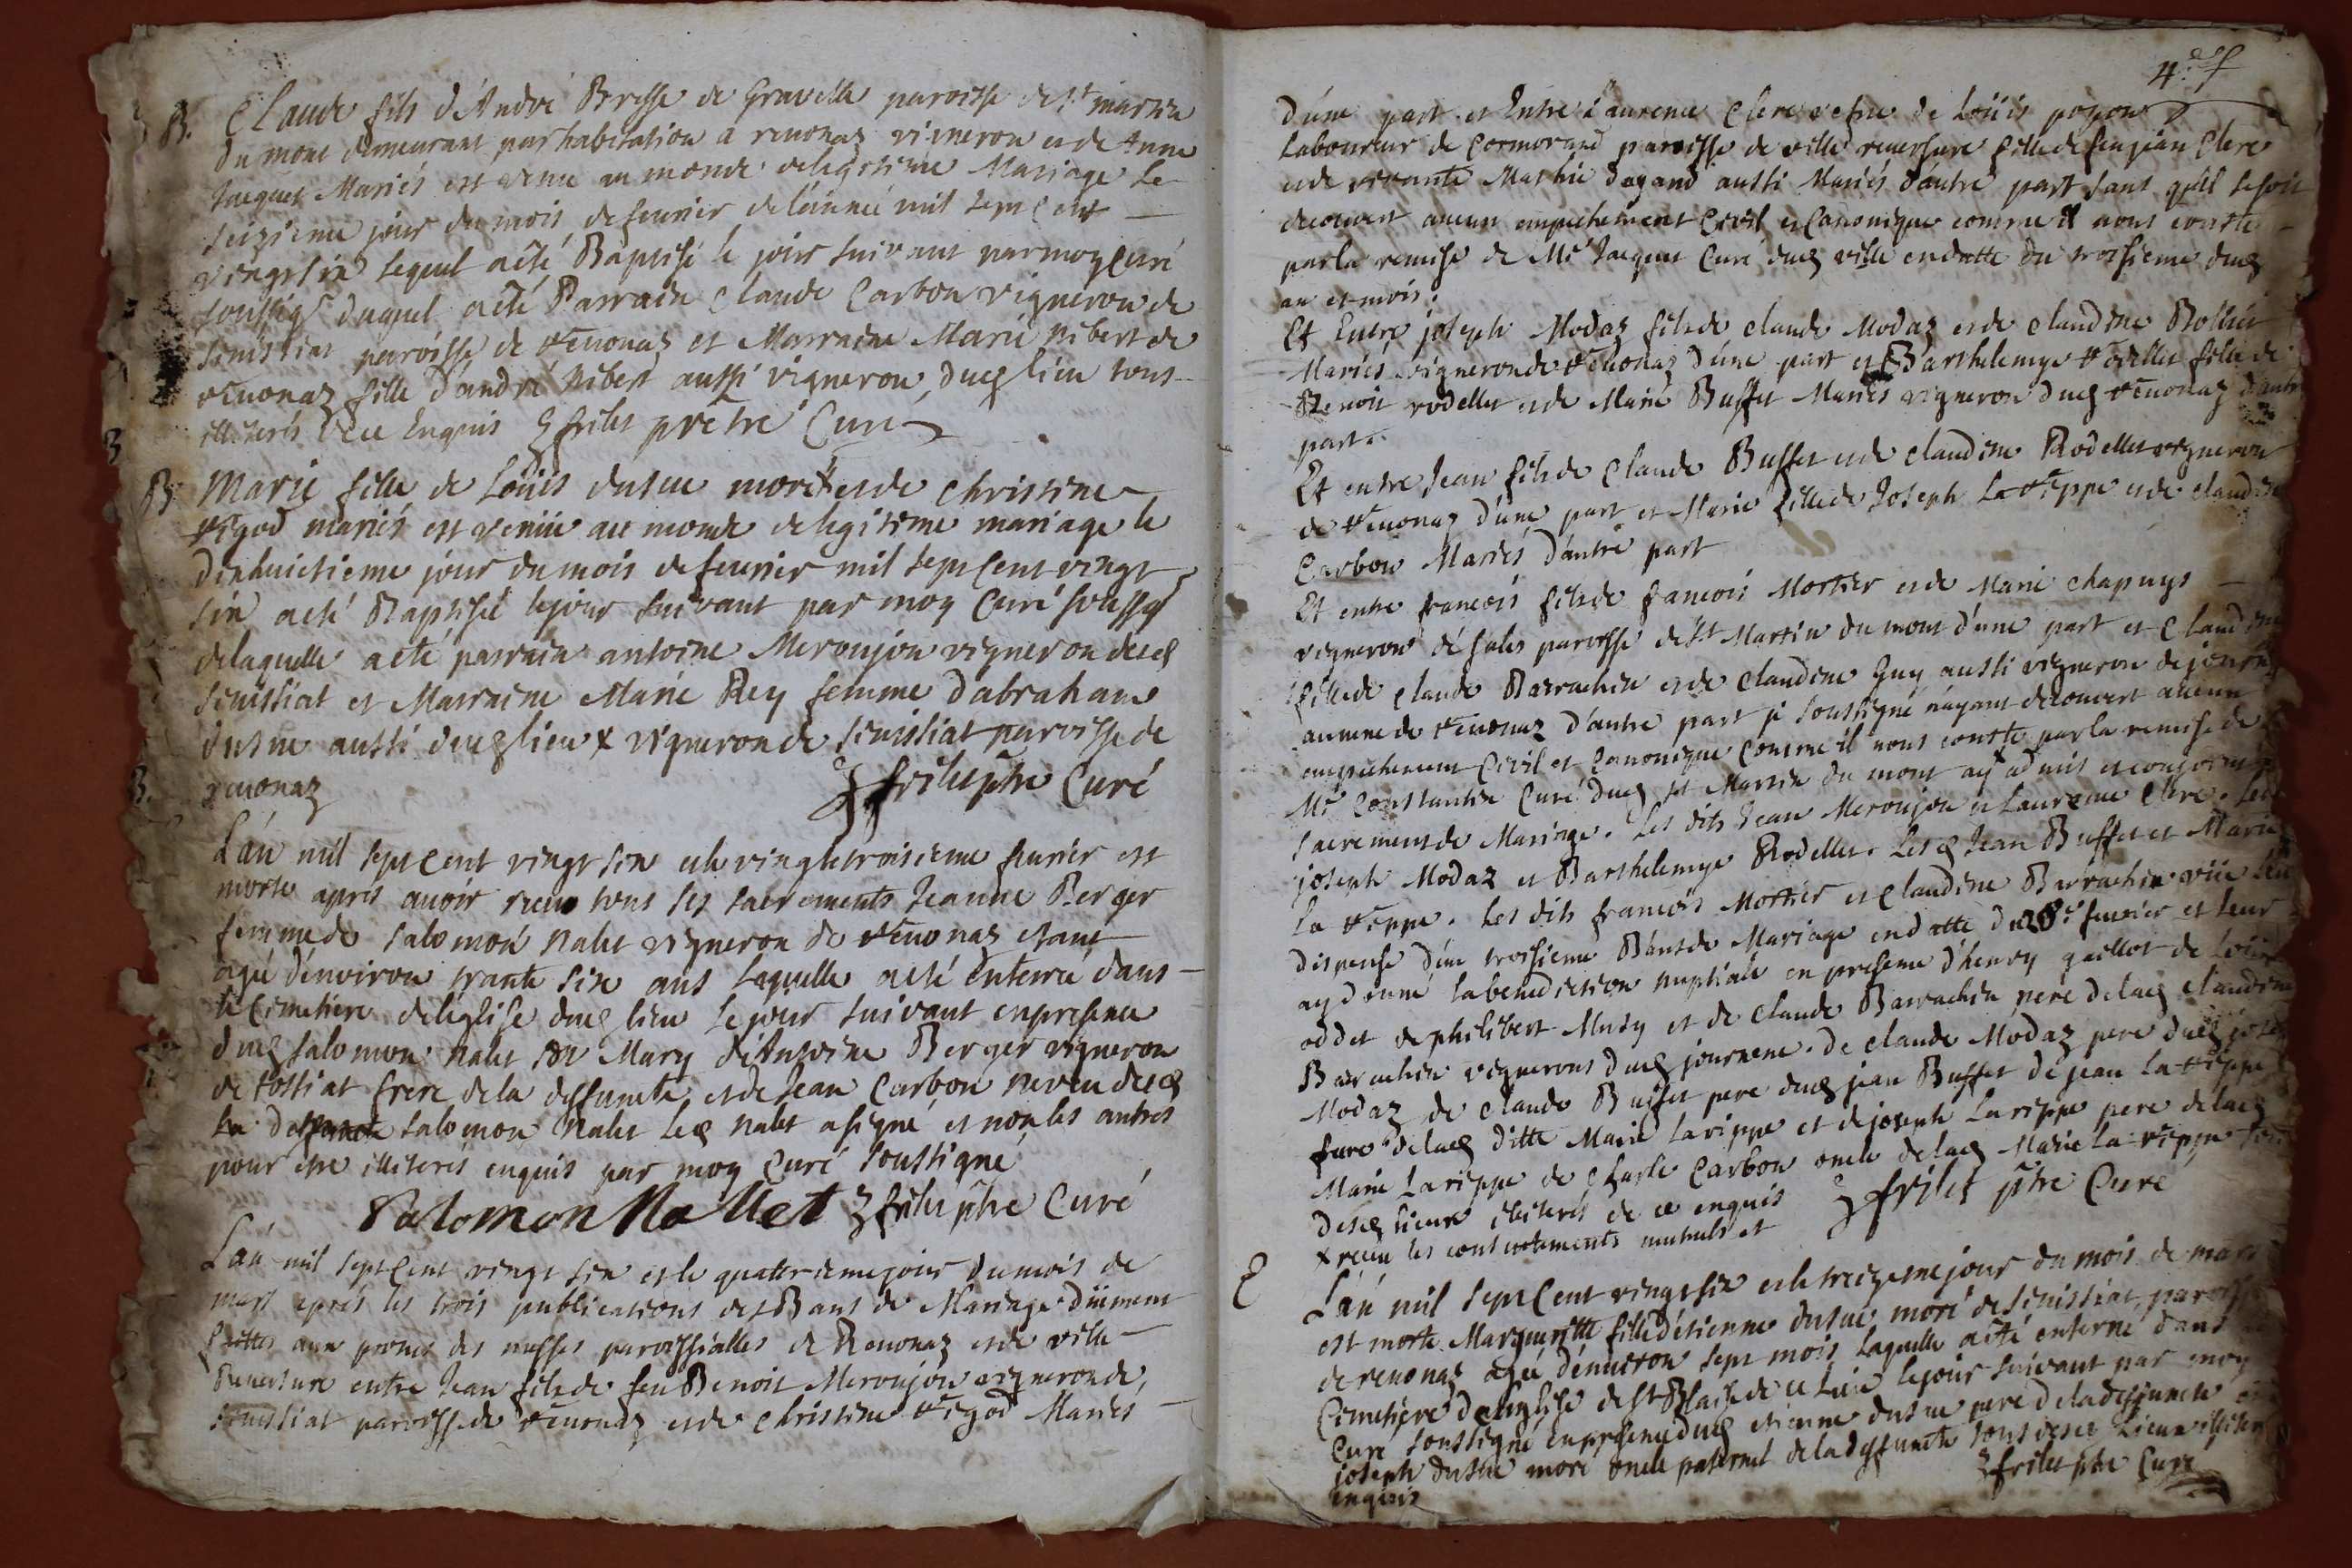 B. Claude fils d'André Bresse de Gravelle paroisse de St martin
du mont demeurant par habitation a reuonaz vigneron et de Anne
Jacquet Mariés est venu au monde de legitime Mariage Le
seizieme jour du mois de feurier de l'année mil sept cent
vingt six lequel a eté Baptisé le jour suivant par moy curé
soussigé duquel a eté Parrain Claude Carbon vigneron de
senissiat paroisse de reuonaz et Marraine Marie nibert de
reuonaz fille d'andré nibert aussi vigneron dud lieu tous
illiterés de ce Enquis frilet prêtre Curé
B Marie fille de Loüis dusue morel et de Christine
rigod mariés est veniie au monde de legitime mariage le
dixhuictieme jour du mois de feurier mil sept cent vingt
six a eté Baptisée le jour suivant par moy Curé soussigé
de laquelle a eté parrain antoine Meroujon vigneron de
senissiat et Marraine Marie Rey femme d'abraham
dusue aussi dud lieu x vigneron de senissiat paroisse de
reuonaz frilet ptre Curé
L'an mil sept cent vingt six et le vingt troisieme feurier est
morte apres auoir receu tous ses sacrements Jeanne Berger
femme de salomon nalet vigneron de reuonaz etant
agée d'enuiron trante six ans Laquelle a eté enterrée dans
le Cimetiere de l'eglise dud lieu le jour suivant en presence
dud salomon nalet son Mary d'Antoine Berger vigneron
de tossiat frere de la deffuncte et de Jean Carbon neveu
salomon nalet Led nalet a signé et non les autres
pour etre illiterés enquis par moy Curé soussigné
Salomon Nallet frilet ptre Curé
L'an mil sept cent vingt six et le quattriemejour du mois de
mars aprés les trois publications des Bans de Mariage düement
faittes aux prones des messes paroissialles de Reuonaz et de ville
Reuersure entre Jean fils de feu Benoit Meroujon vigneron de
senissiat paroisse de reuonaz et de Christine rigod Mariés
4e f
d'une part et Entre Laurence Clerc vefue de Loüis
Laboureur de Cormorand paroisse de ville reuersure fille de feu jean Clerc
et de vivante Mathie dagand aussi Mariés d'autre part sans qu'il se soit
decouvert aucun empechement Civil et Canonique comme il nous conste
par la remise de Mr Jacquet Curé dud ville en datte du troisieme dud
an et mois.
Et Entre joseph Modaz fils de Claude Modaz et de Claudine
Mariés vigneron de reuonaz d'une part et Barthelemye rodellet fille de
Benoit rodellet et de Marie Buffet Mariés vigneron dud reuonaz d'autre
part.
Et entre Jean fils de Claude Buffet et de Claudine Rodellet vigneron
de reuonaz d'une part et Marie fille de Joseph La rippe et de Claudine
Carbon Mariés d'autre part
Et entre francois fils de francois Mortier et de Marie Chapuys
vigneron de sales paroisse de St Martin du mont d'une part et Claudine
fille de Claude Barrachin et de Claudine Guy aussi vigneron de
de reuonaz d'autre part je soussigné n'ayant decouvert aucun
empechement Civil et Canonique Comme il nous conste par la remise de
Mr Constantin Curé dud St Martin du mont ay admis et conjoint
sacrement de Mariage. Les dits Jean Meroujon et Laurence Clerc. Led
joseph Modaz et Barthelemye Rodellet. Lesd Jean Buffet et Marie
La rippe. Les dits francois Mortier et Claudine Barrachin
dispense d'un troisieme Bans de Mariage en datte du feurier et leur
ay donné la benediction nuptiale en presence d'henry gaillot de
oddet de philibert Musy et de Claude Barrachin pere de lad Claudine
Barrachin vignerons dud journene. De Claude Modaz pere dud
Modaz de Claude Buffet pere dud jean Buffet de jean La rippe
frere de lad ditte Marie Larippe et de joseph Larippe pere de lad
Marie Larippe de Charle Carbon oncle de lad Marie La rippe
desd lieux illiterés de ce enquis frilet ptre Curé
x receu les consentements mutuels et
L'an mil sept Cent vingt six et le treizeme jour du mois de mars
est morte Marguerite fille d'etienne dusue morel de senissiat paroisse
de reuonaz agée d'enuiron sept mois Laquelle a eté enterrée dans
Cimetiere de l'eglise de St Blaise de ce lieu le jour suivant par moy
Curé soussigné en presence dud etienne dusue pere de la deffuncte
joseph dusue morel oncle paternel de la deffuncte tous desd Lieux
enquis frilet ptre Curé